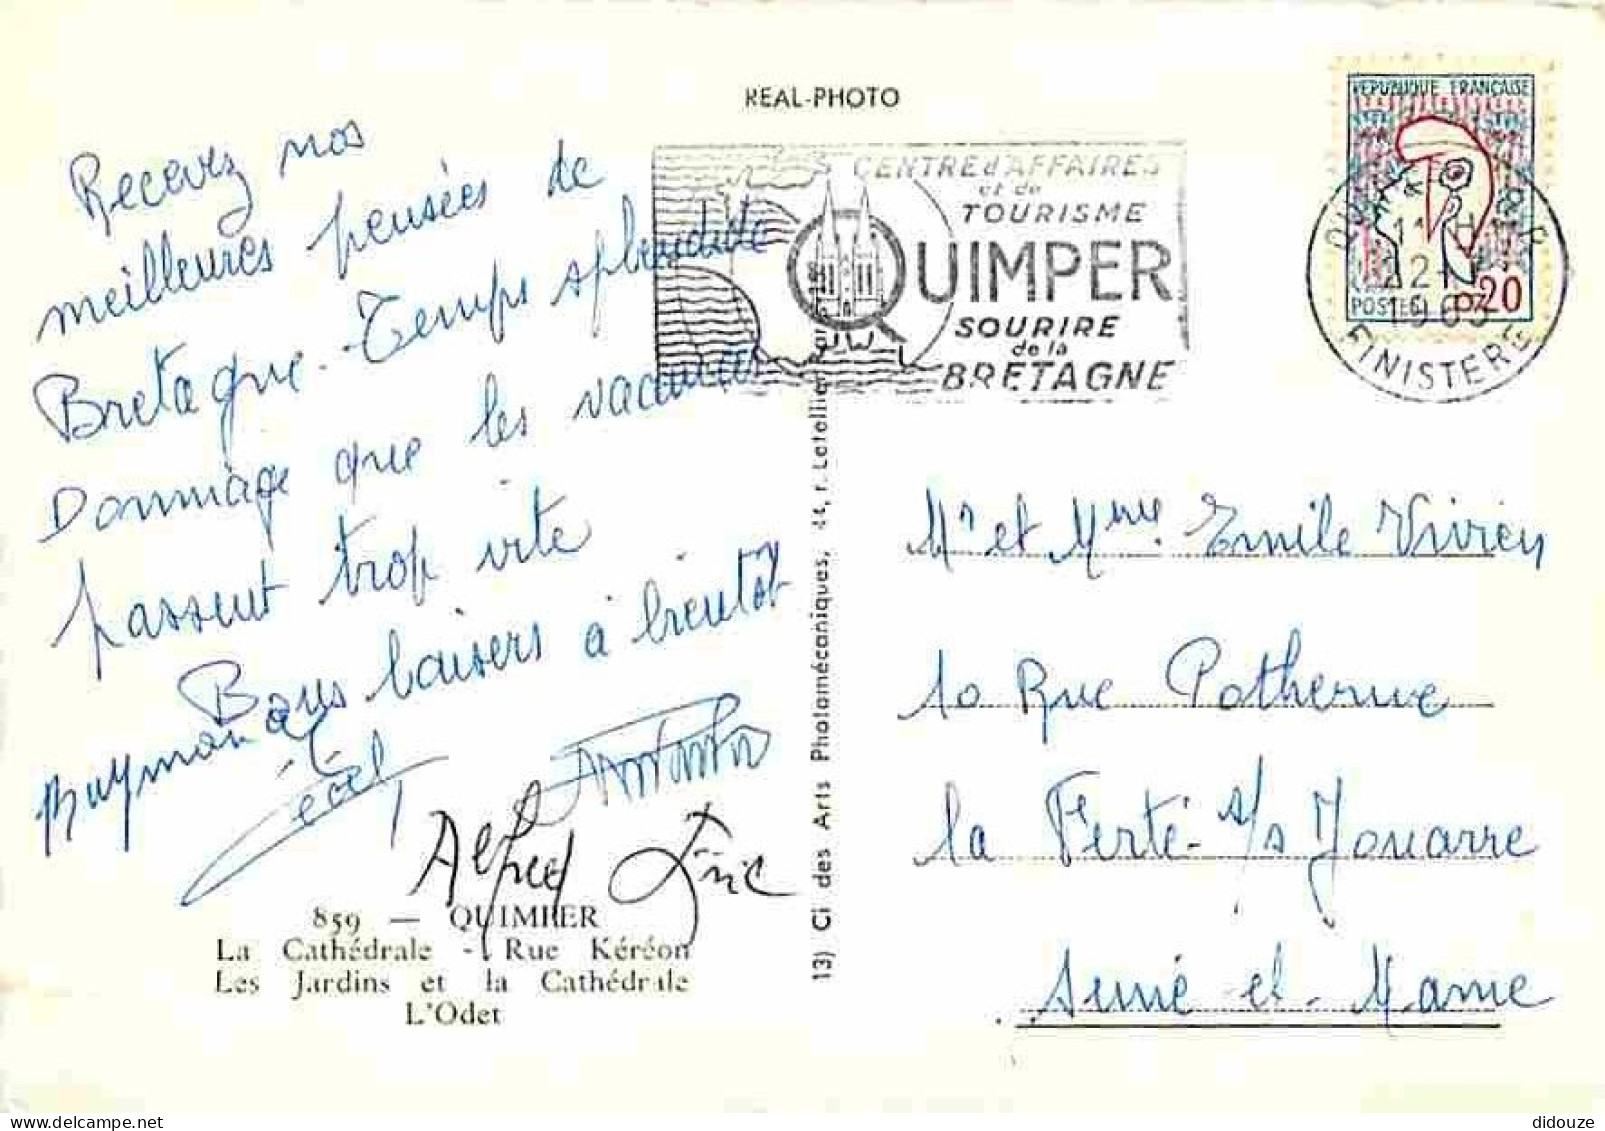 REAL-PHOTO
Recevez nos
meilleures pensées de
Bretagne - Temps splendide
Dommage que les vacances
passent trop vite
Bons baisers à bientôt
Raymonde
Alfred
859 — QUIMPER
La Cathédrale - Rue Kéréon
Les Jardins et la Cathédrale
L'Odet
CENTRE d'AFFAIRES
et de
TOURISME
QUIMPER
SOURIRE
de la
BRETAGNE
REPUBLIQUE FRANÇAISE
POSTES 0,20
QUIMPER
1963
FINISTERE
Ci des Arts Photomécaniques, 44, r. Letellier
Mr et Mme Emile Vivien
10 Rue Potherne
la Ferté s/s Jouarre
Seine et Marne
didouze